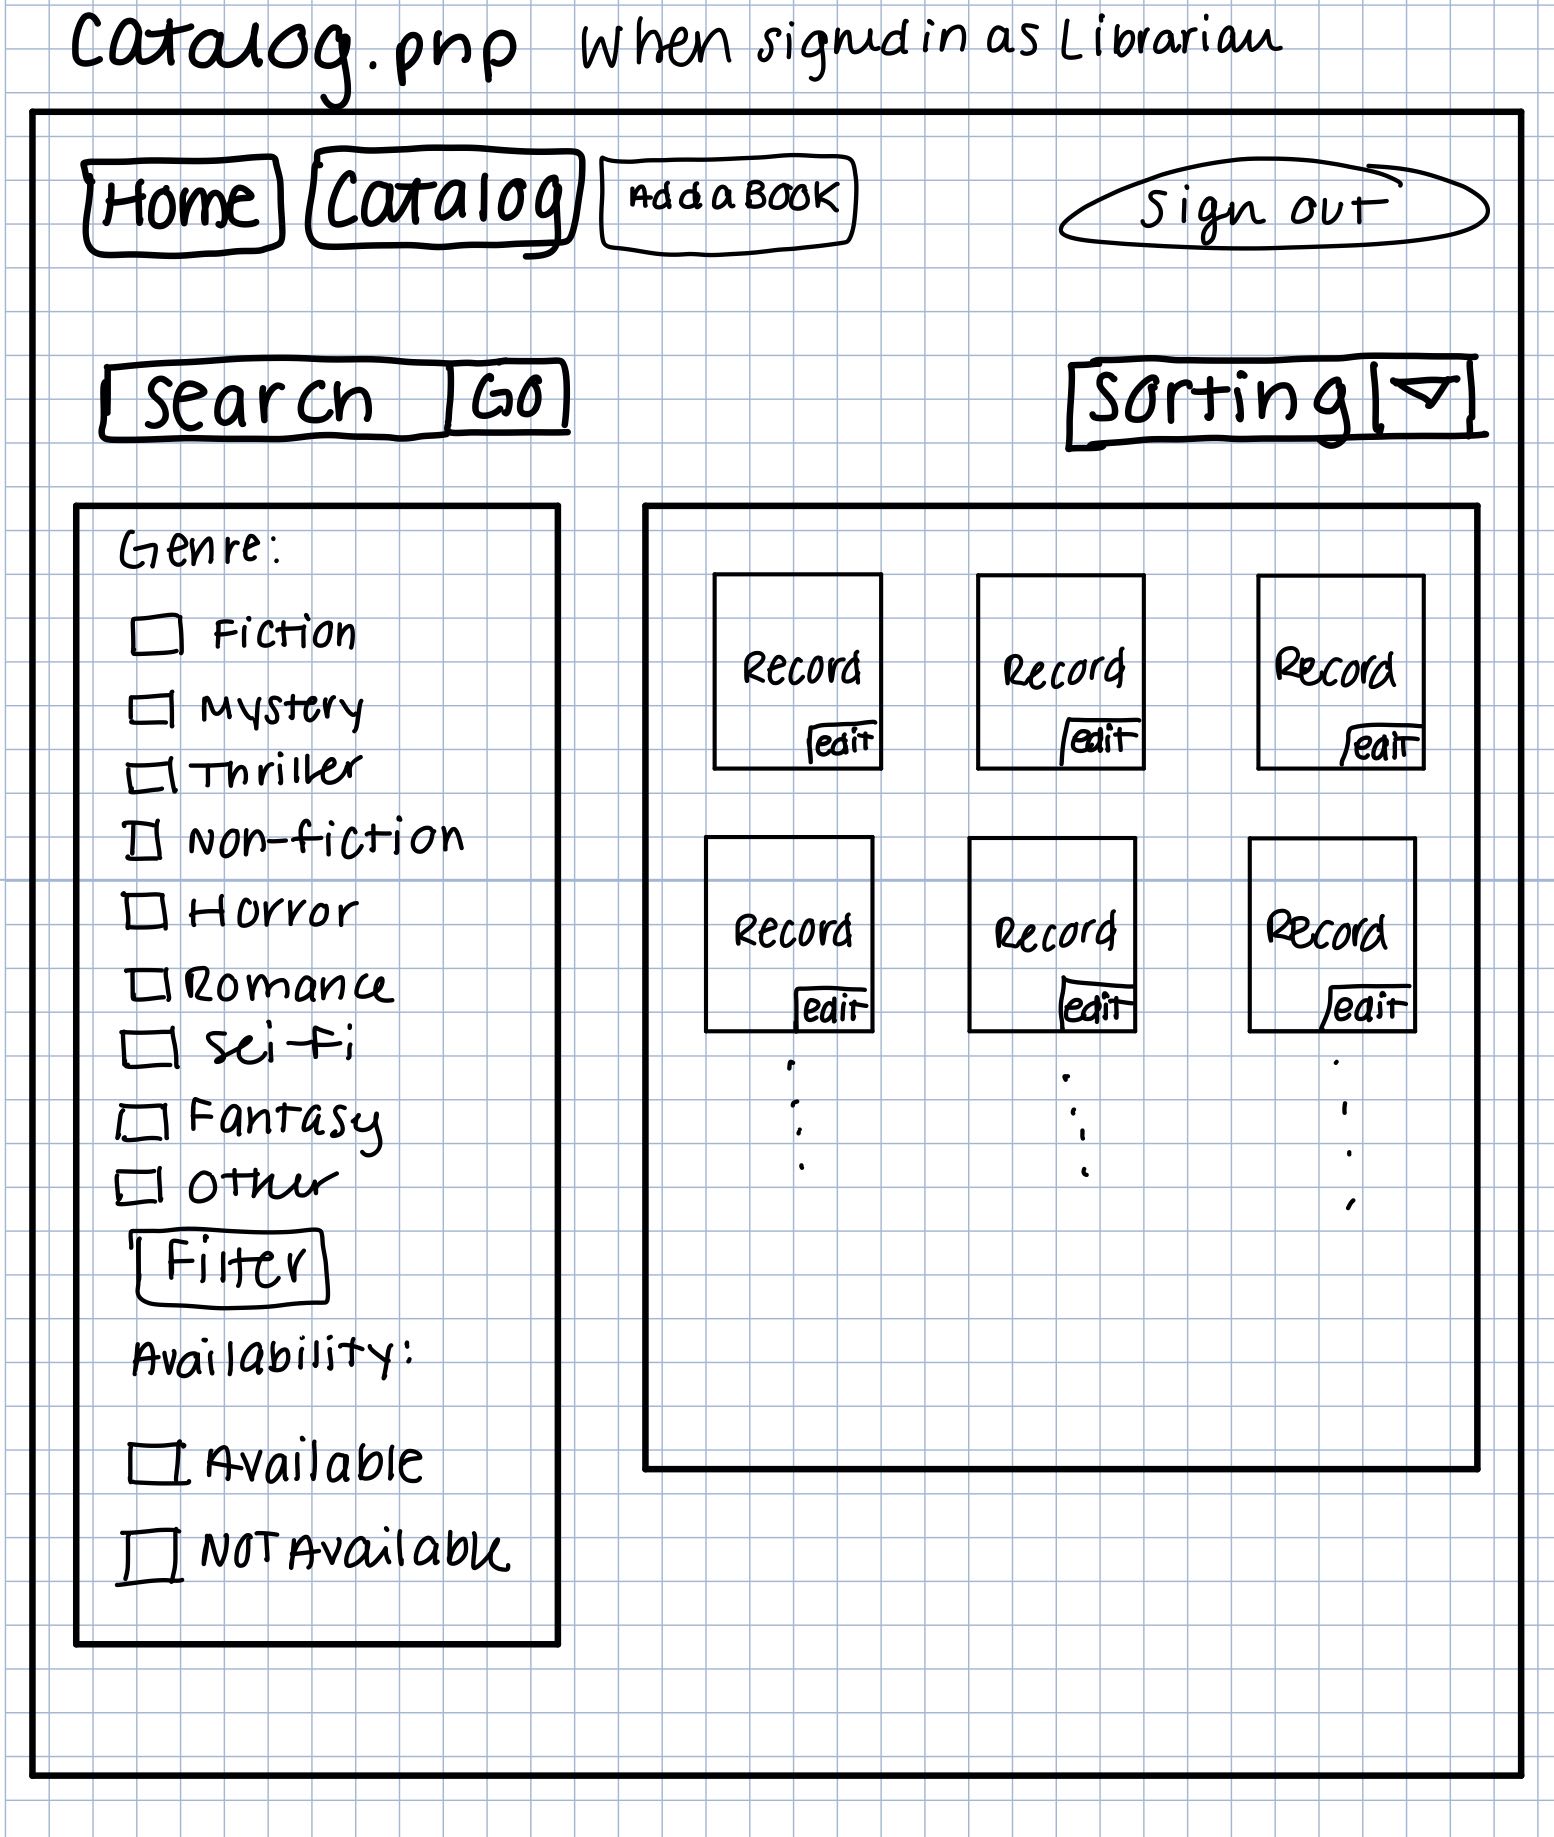 Catalog.php when signed in as Librarian
Home Catalog Add a Book Sign out
Search GO Sorting
Genre:
Fiction
Mystery
Thriller
Non-fiction
Horror
Romance
Sci-Fi
Fantasy
Other
Filter
Availability:
Available
NOT Available
Record Record Record
edit edit edit
Record Record Record
edit edit edit